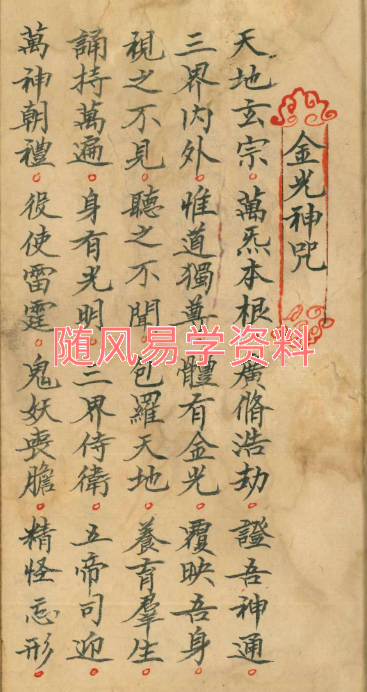 金光神咒
天地玄宗萬炁本根廣脩浩劫證吾神通
三界內外惟道獨尊體有金光覆映吾身
視之不見聽之不聞包羅天地養育羣生
誦持萬遍身有光明三界侍衛五帝司迎
萬神朝禮役使雷霆鬼妖喪膽精怪忘形
随风易学资料